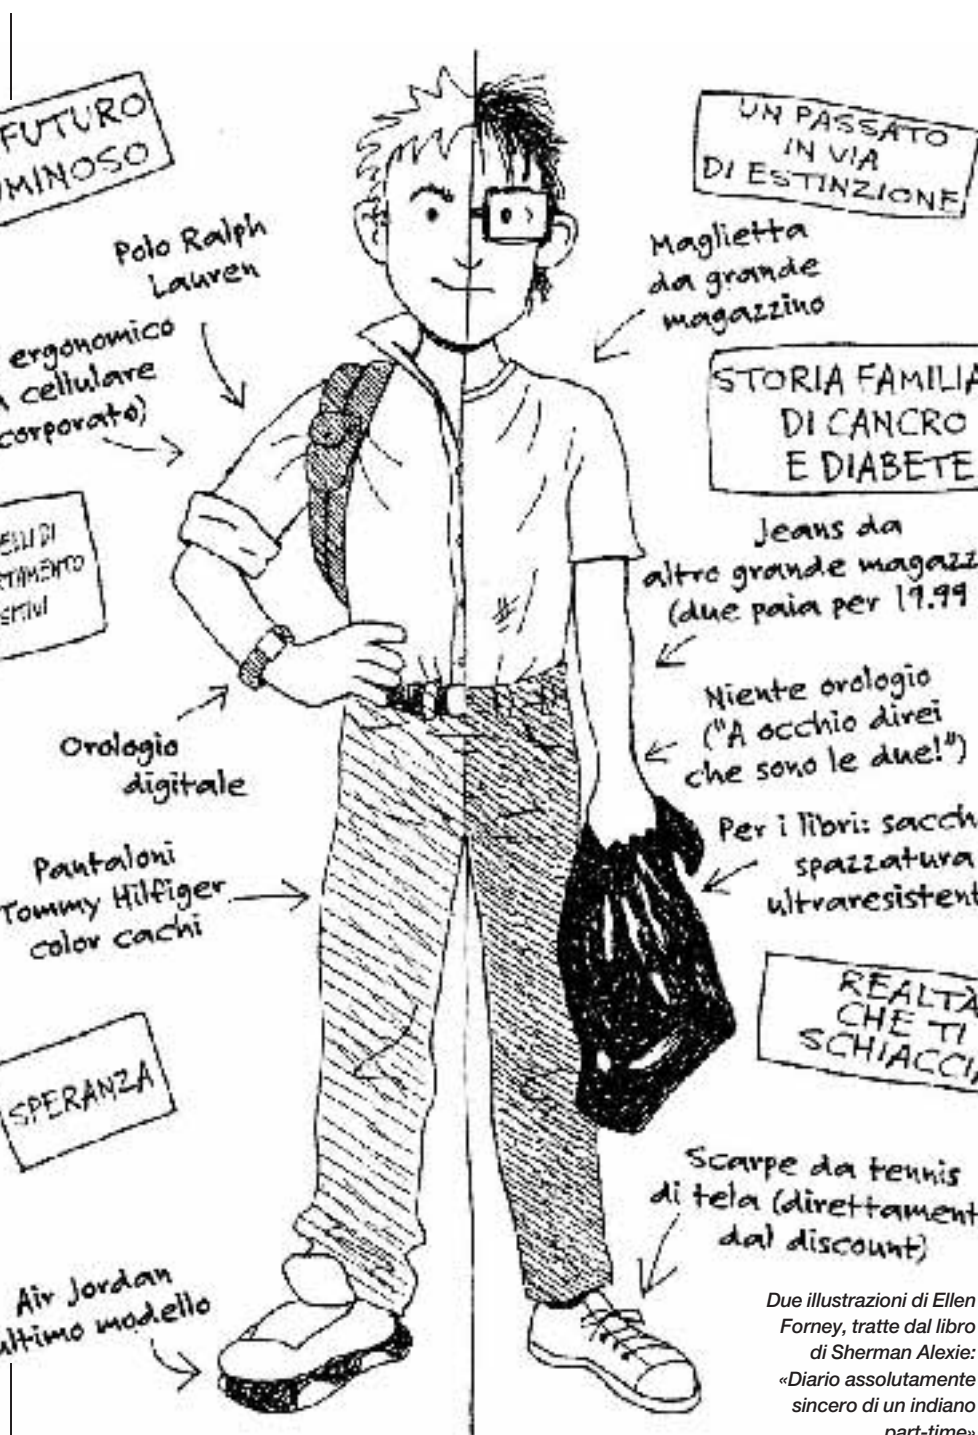 FUTURO
MINOSO
Polo Ralph
Lauren
ergonomico
cellulare
corporato)
ELLI DI
RTAMENTO
SITIVI
Orologio
digitale
Pantaloni
Tommy Hilfiger
color cachi
SPERANZA
Air Jordan
ultimo modello
UN PASSATO
IN VIA
DI ESTINZIONE
Maglietta
da grande
magazzino
STORIA FAMILIA
DI CANCRO
E DIABETE
Jeans da
altro grande magazz
(due paia per 19.99
Niente orologio
("A occhio direi
che sono le due!")
Per i libri: sacch
spazzatura
ultraresistent
REALTÀ
CHE TI
SCHIACCIA
Scarpe da tennis
di tela (direttament
dal discount)
Due illustrazioni di Ellen
Forney, tratte dal libro
di Sherman Alexie:
«Diario assolutamente
sincero di un indiano
part-time»